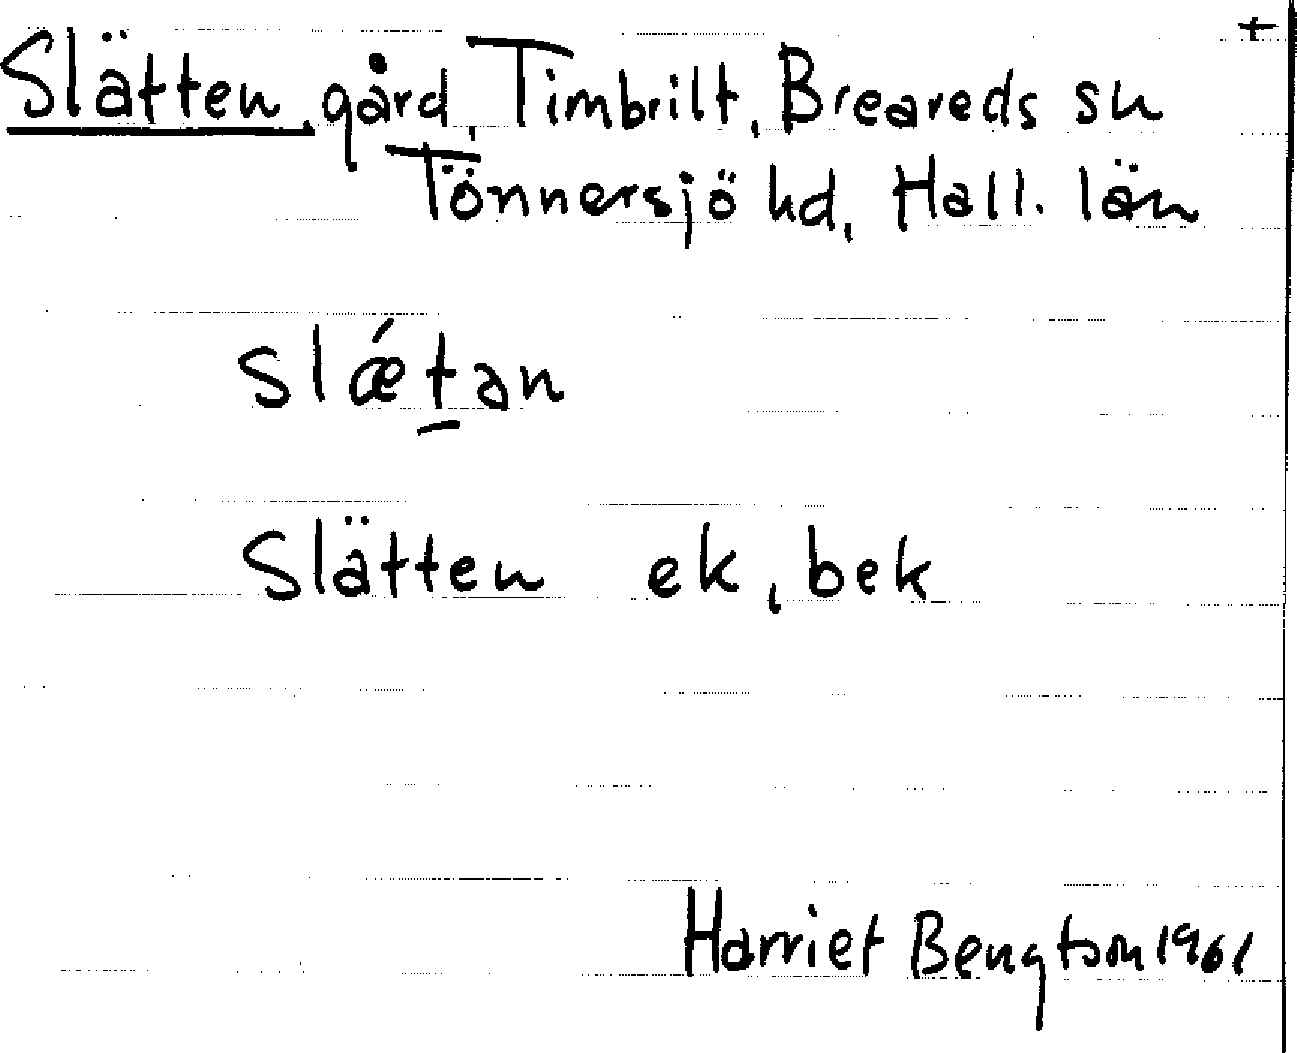 +
Slätten, gård, Timbrilt, Breareds sn
Tönnersjö hd, Hall. län
slǽt̲ən
Slätten ek, bek
Harriet Bengtson 1961